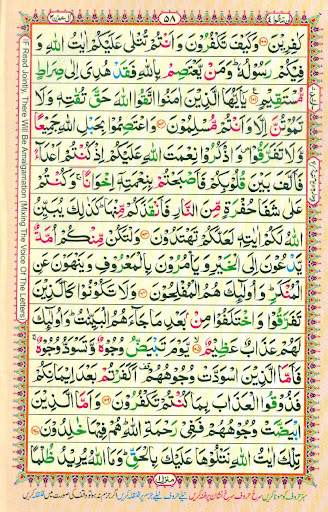 ٥٨
كٰفِرِيْنَ ۝۱۰۰ وَكَيْفَ تَكْفُرُوْنَ وَاَنْتُمْ تُتْلٰى عَلَيْكُمْ اٰيٰتُ اللّٰهِ وَ
فِيْكُمْ رَسُوْلُهٗ ؕ وَمَنْ يَّعْتَصِمْ بِاللّٰهِ فَقَدْ هُدِىَ اِلٰى صِرَاطٍ
مُّسْتَقِيْمٍ ۝۱۰۱ يٰۤاَيُّهَا الَّذِيْنَ اٰمَنُوا اتَّقُوا اللّٰهَ حَقَّ تُقٰتِهٖ وَلَا
تَمُوْتُنَّ اِلَّا وَاَنْتُمْ مُّسْلِمُوْنَ ۝۱۰۲ وَاعْتَصِمُوْا بِحَبْلِ اللّٰهِ جَمِيْعًا
وَّلَا تَفَرَّقُوْا ۪ وَاذْكُرُوْا نِعْمَتَ اللّٰهِ عَلَيْكُمْ اِذْ كُنْتُمْ اَعْدَآءً
فَاَلَّفَ بَيْنَ قُلُوْبِكُمْ فَاَصْبَحْتُمْ بِنِعْمَتِهٖۤ اِخْوَانًا ۚ وَكُنْتُمْ
عَلٰى شَفَا حُفْرَةٍ مِّنَ النَّارِ فَاَنْقَذَكُمْ مِّنْهَا ؕ كَذٰلِكَ يُبَيِّنُ
اللّٰهُ لَكُمْ اٰيٰتِهٖ لَعَلَّكُمْ تَهْتَدُوْنَ ۝۱۰۳ وَلْتَكُنْ مِّنْكُمْ اُمَّةٌ
يَّدْعُوْنَ اِلَى الْخَيْرِ وَيَاْمُرُوْنَ بِالْمَعْرُوْفِ وَيَنْهَوْنَ عَنِ
الْمُنْكَرِ ؕ وَاُولٰٓئِكَ هُمُ الْمُفْلِحُوْنَ ۝۱۰۴ وَلَا تَكُوْنُوْا كَالَّذِيْنَ
تَفَرَّقُوْا وَاخْتَلَفُوْا مِنْۢ بَعْدِ مَا جَآءَهُمُ الْبَيِّنٰتُ ؕ وَاُولٰٓئِكَ
لَهُمْ عَذَابٌ عَظِيْمٌ ۝۱۰۵ يَّوْمَ تَبْيَضُّ وُجُوْهٌ وَّتَسْوَدُّ وُجُوْهٌ ۚ
فَاَمَّا الَّذِيْنَ اسْوَدَّتْ وُجُوْهُهُمْ ۟ اَكَفَرْتُمْ بَعْدَ اِيْمَانِكُمْ
فَذُوْقُوا الْعَذَابَ بِمَا كُنْتُمْ تَكْفُرُوْنَ ۝۱۰۶ وَاَمَّا الَّذِيْنَ
ابْيَضَّتْ وُجُوْهُهُمْ فَفِىْ رَحْمَةِ اللّٰهِ ؕ هُمْ فِيْهَا خٰلِدُوْنَ ۝۱۰۷
تِلْكَ اٰيٰتُ اللّٰهِ نَتْلُوْهَا عَلَيْكَ بِالْحَقِّ ؕ وَمَا اللّٰهُ يُرِيْدُ ظُلْمًا
(If Read Jointly, There Will Be Amalgamation (Mixing The Voice Of The Letters)